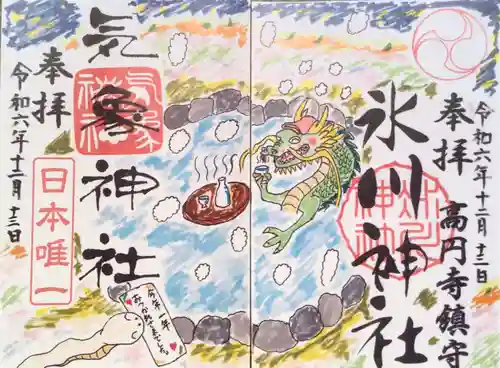 奉拝
令和六年十二月十三日
高円寺鎮守
氷川神社
気象神社
奉拝
令和六年十二月十三日
日本唯一
今年一年
おつかれさまでした。